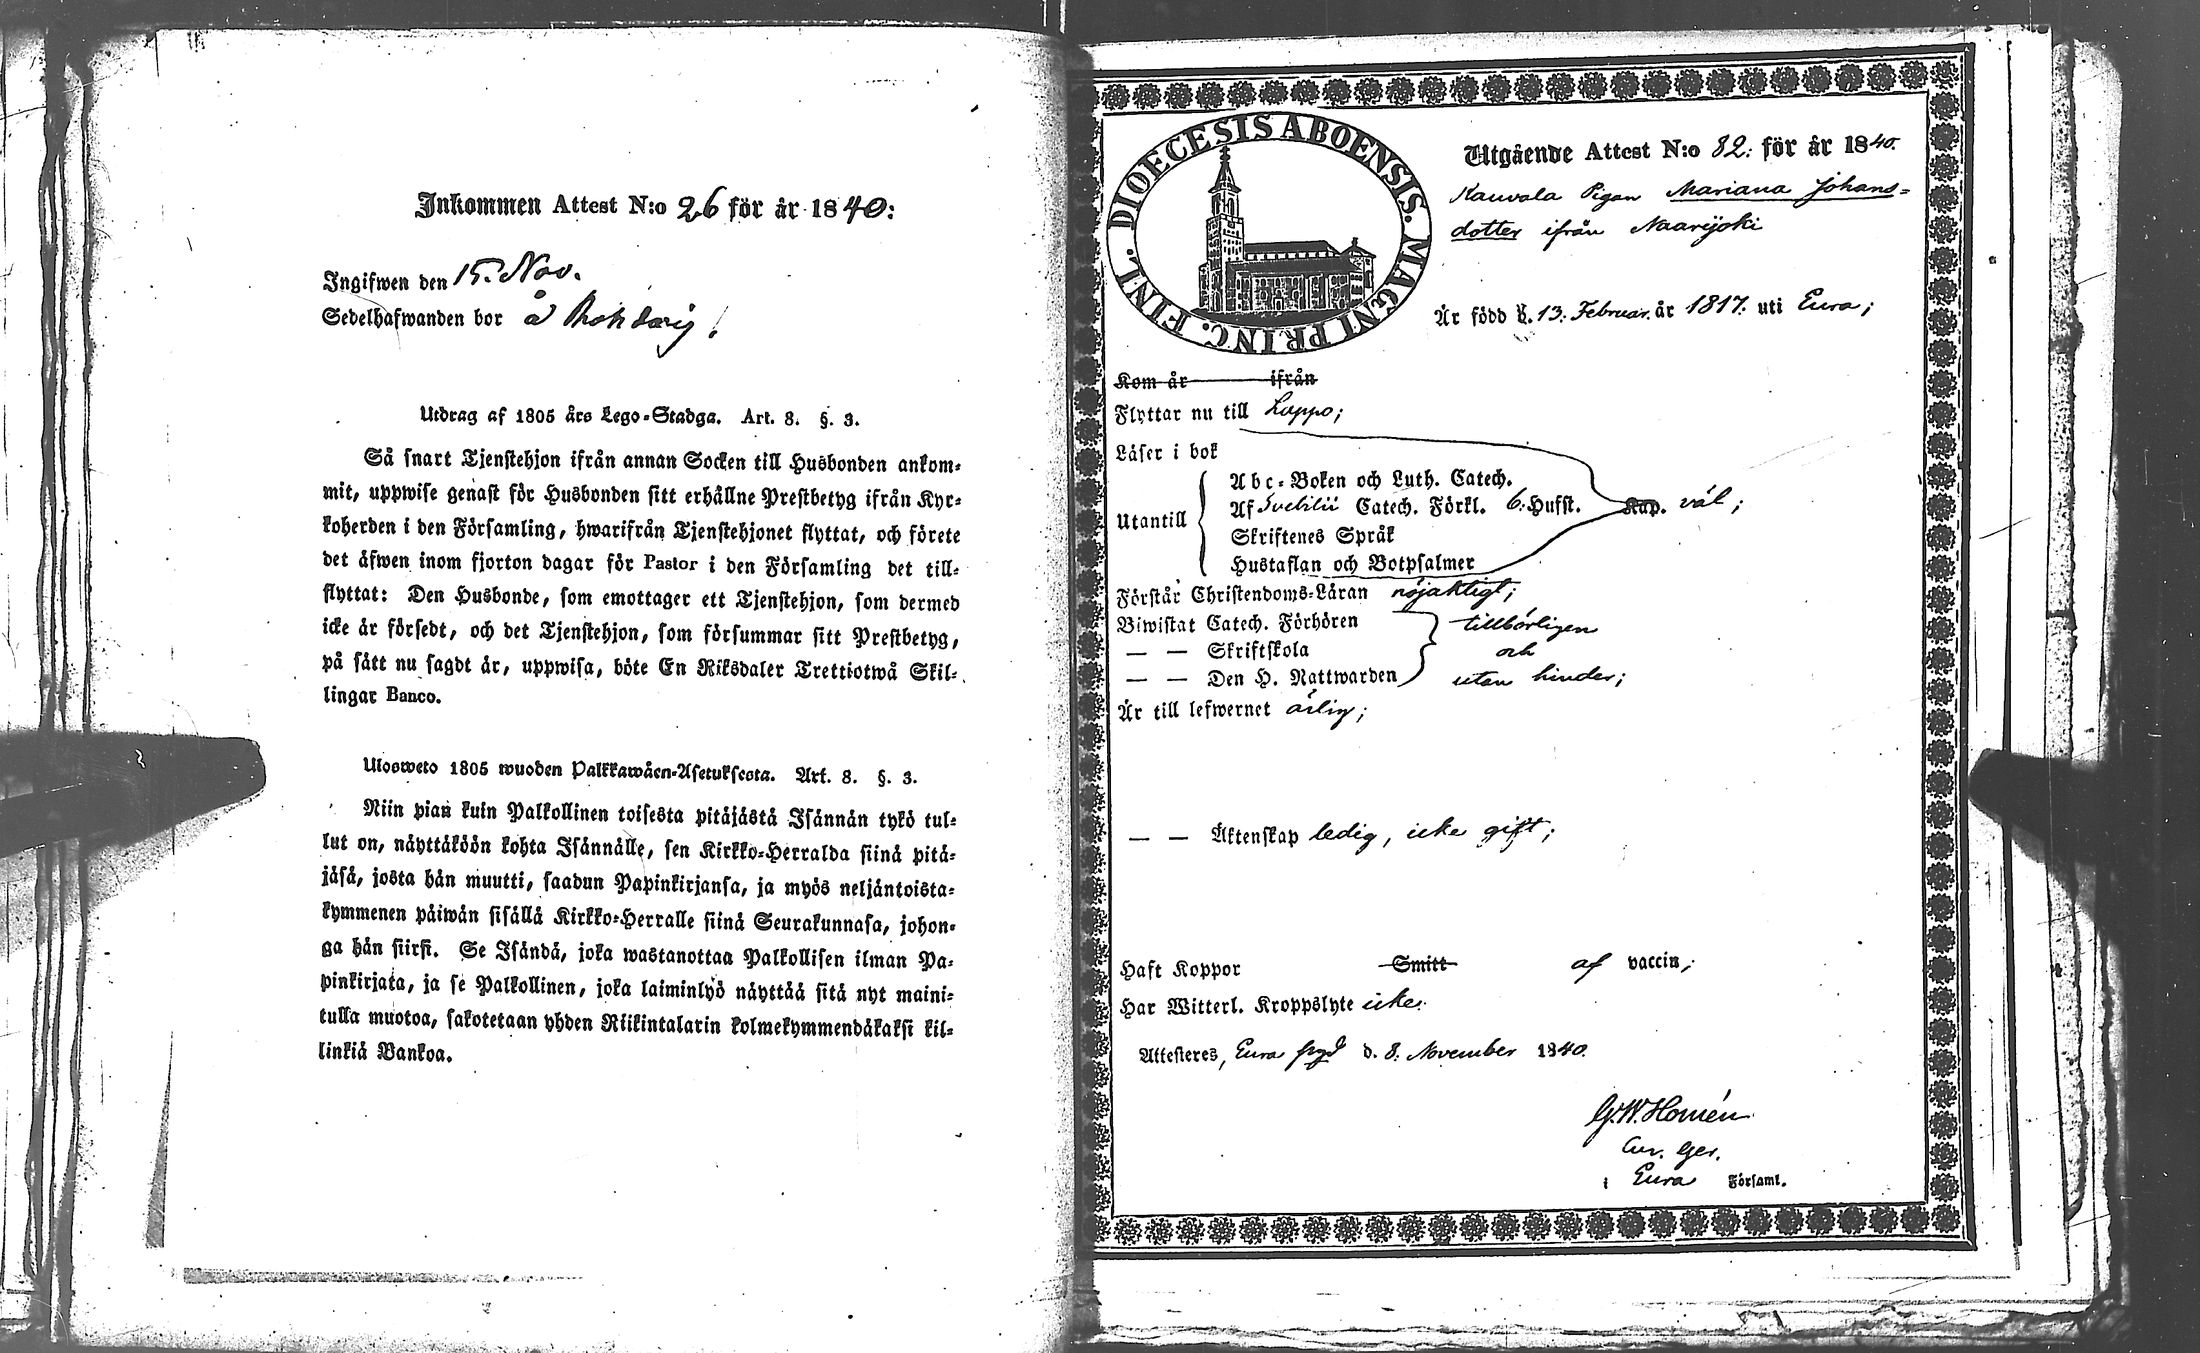 Inkommen Attest N:o 26 för år 1840:
Ingifwen den 15. Nov.
Sedelhafwanden bor å
Utdrag af 1805 års Lego-Stadga. Art. 8. §. 3.
Så snart Tjenstehjon ifrån annan Socken till Husbonden ankom-
mit, uppwise genast för Husbonden sitt erhållne Prestbetyg ifrån Kyr-
koherden i den Församling, hwarifrån Tjenstehjonet flyttat, och förete
det äfwen inom fjorton dagar för Pastor i den Församling det till-
flyttat: Den Husbonde, som emottager ett Tjenstehjon, som dermed
icke är försedt, och det Tjenstehjon, som försummar sitt Prestbetyg,
på sätt nu sagdt är, uppwisa, böte En Riksdaler Trettiotwå Skil-
lingar Banco.
Ulosweto 1805 wuoden Palkkawäen-Asetuksesta. Art. 8. §. 3.
Niin pian kuin Palkollinen toisesta pitäjästä Isännän tykö tul-
lut on, näyttäköön kohta Isännälle, sen Kirkko-Herralda siinä pitä-
jäsä, josta hän muutti, saadun Papinkirjansa, ja myös neljäntoista-
kymmenen päiwän sisällä Kirkko-Herralle siinä Seurakunnasa, johon-
ga hän siirsi. Se Isändä, joka wastanottaa Palkollisen ilman Pa-
pinkirjata, ja se Palkollinen, joka laiminlyö näyttää sitä nyt maini-
tulla muotoa, sakotetaan yhden Riikintalarin kolmekymmendäkaksi kil-
linkiä Bankoa.
DIOECESIS ABOENSIS. MAGNI PRINC. FINL.
Utgående Attest N:o 82: för år 1840.
Kauvala Pigan Mariana Johans-
dotter ifrån Naarijoki
Är född d. 13. Februar. år 1817. uti Eura;
Kom år ifrån
Flyttar nu till Lappo;
Läser i bok
Abc-Boken och Luth. Catech.
Utantill Af Svebilii Catech. Förkl. 6. Hufst. Kap. väl;
Skriftenes Språk
Hustaflan och Botpsalmer
Förstår Christendoms-Läran nöjaktigt;
Biwistat Catech. Förhören tillbörligen
— — Skriftskola och
— — Den H. Nattwarden utan hinder;
Är till lefwernet ärlig;
— — Äktenskap ledig, icke gift;
Haft Koppor Smitt af vaccin;
Har Witterl. Kroppslyte icke.
Attesteres, Eura d. 8. November 1840.
G.W. Homén
Cur. Ger.
i Eura Församl.